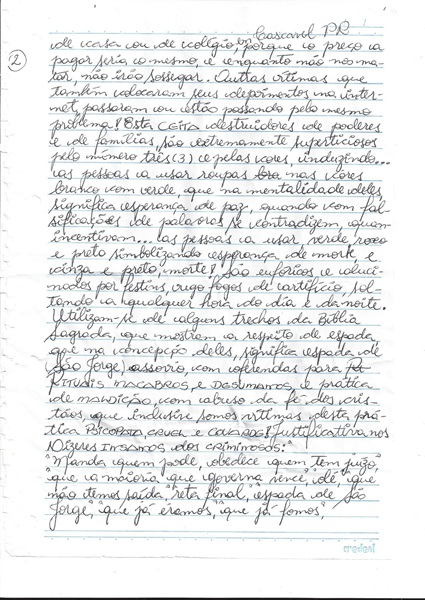 Cascavel PR
2
de casa ou de colégio, em porque o preço a
pagar seria o mesmo, e enquanto não nos ma-
tar, não irão sossegar. Outras vítimas que
também colocaram seus depoimentos na inter-
net, passaram ou estão passando pelo mesmo
problema! Esta CEITA destruidores de poderes
e de famílias, são extremamente supersticiosos
pelo número três (3) e pelas cores, induzindo...
as pessoas a usar roupas nas cores
branco com verde, que na mentalidade deles
significa esperança de paz, quando com fal-
sificações de palavras se contradizem, quan
incentivam... as pessoas a usar verde, roxo
e preto simbolizando esperança de morte, e
cinza e preto, morte! São eufóricos e aluci-
nados por festins, vugo fogos de artifício, sol-
tando a qualquer hora do dia e da noite.
Utilizam-se de alguns trechos da Bíblia
Sagrada, que mostram a respeito de espada,
que na concepção deles, significa espada de
(São Jorge) assovio, com oferendas para
RITUAIS MACABROS, E DASUMANOS, e prática
de MALDIÇÃO, com abuso da fé dos cris-
tãos, que inclusive somos vítimas desta prá-
tica PSICOPATA, CRUEL e COVARDES! Justificativa nos
Dizeres INSANOS DOS CRIMINOSOS:"
"Manda quem pode, obedece quem tem juízo,"
"que a maioria que governa vence", dê, "que
não temos saída", "reta final, espada de São
Jorge", "que já éramos", "que já fomos",
credeal